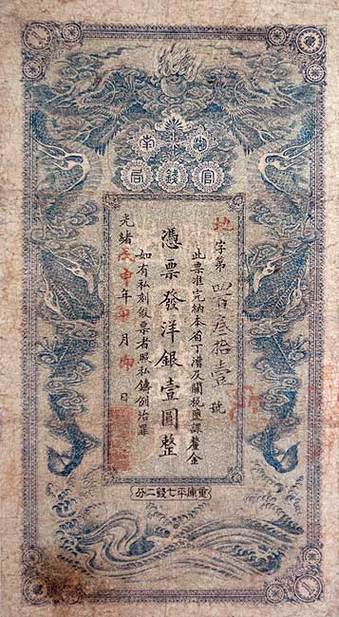 湖南
官錢局
地字第四百叁拾壹號
此票准完納本省丁漕及關稅鹽課釐金
憑票發洋銀壹圓整
如有私刻假票者照私鑄例治罪
光緒戊申年月日
重庫平七錢二分